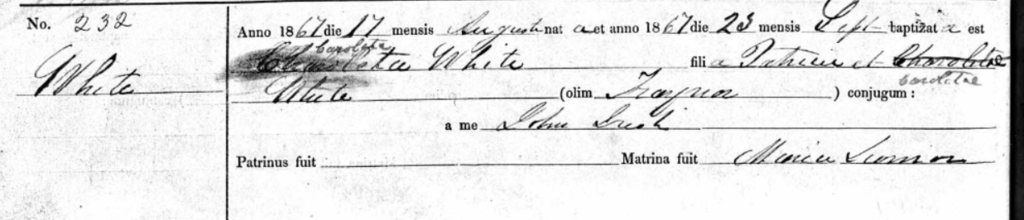 No. 232
Anno 1867 die 17 mensis August nat a et anno 1867 die 23 mensis Sept baptizat a est
Caroleta
Charleta White fili a Patricii et Charolitae
White
Carolitae
White (olim Traynor) conjugum:
a me John
Patrinus fuit Matrina fuit Maria